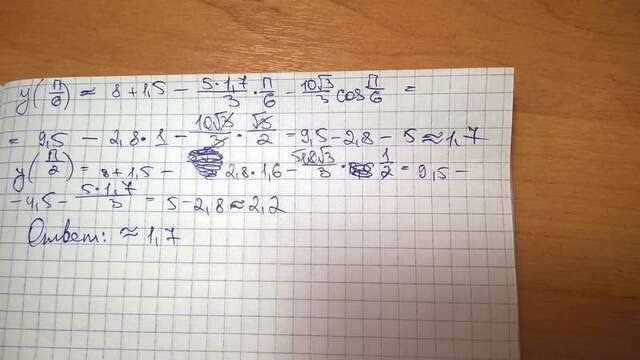 y(π/6) ≈ 8 + 1,5 - 5·1,7/3 · π/6 - 10√3/3 cos π/6 =
= 9,5 - 2,8·1 - 10√3/3 · √3/2 = 9,5 - 2,8 - 5 ≈ 1,7
y(π/2) = 8 + 1,5 - 2,8·1,6 - 10√3/3 · 1/2 = 9,5 -
- 4,5 - 5·1,7/3 = 5 - 2,8 ≈ 2,2
Ответ: ≈ 1,7